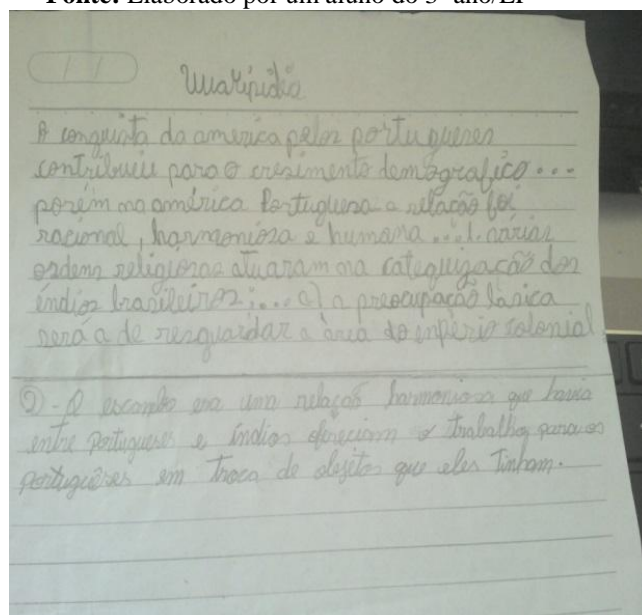 Fonte: Elaborado por um aluno do 3º ano/EF
/ /
A conquista da america pelos portugueses
contribuiu para o cresimento demografico...
porém na américa Portuguesa a relação foi
racional, harmoniosa e humana... várias
ordens religiosas atuaram na catequização dos
índios brasileiros;... a preocupação básica
será a de resguardar a área do império colonial
2)- O escambo era uma relação harmoniosa que havia
entre portugueses e índios ofereciam o trabalho para os
portuguêses em troca de objetos que eles tinham.